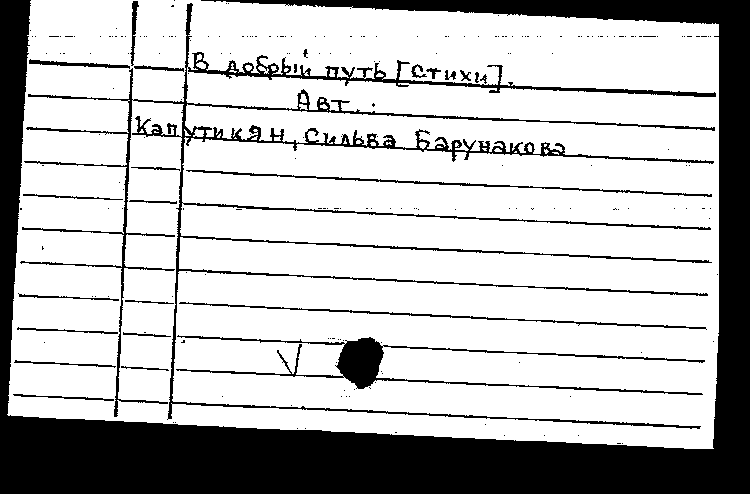 В добрый путь [Стихи].
Авт. :
Капутикян, Сильва Барунакова